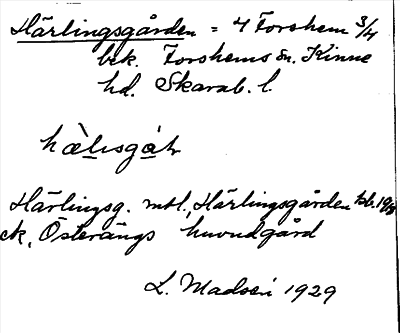 Härlingsgården = 4 Forshem 3/4
bek. Forshems sn. Kinne
hd. Skarab. l.
hàlısgàṙ
Härlingsg. mtl., Härlingsgården kb. 19/8
ek, Österängs huvudgård
L. Madsén 1929